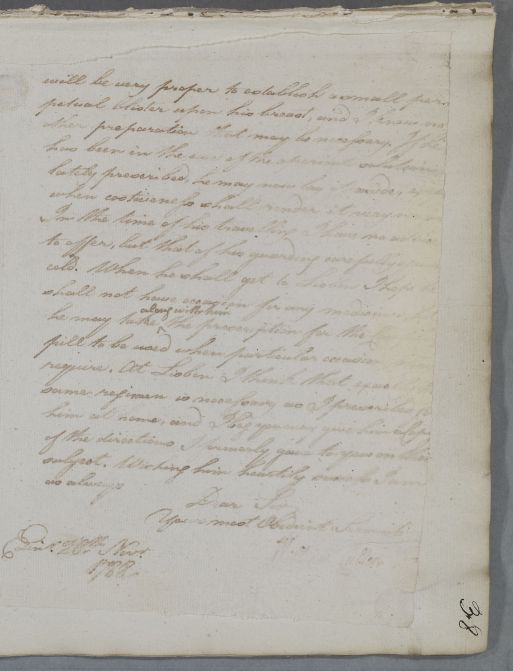 will be very proper to establish a small per-
petual blister upon his breast, and I know no
other preparation that may be necessary. If he
has been in the use of the aperient
lately prescribed, he may now lay it aside,
when costiveness shall render it
In the time of his travelling I have no
to offer, but that of his guarding carefully
cold. When he shall get to Lisbon I hope he
shall not have occasion for any medicine,
along with him
he may take ^ the prescription for the
pill to be used when particular occasion
require. At Lisbon I think that exact
same regimen is necessary as I prescribed to
him at home, and I beg you may give him a copy
of the directions I formerly gave to you on this
subject. Wishing him heartily I am
as always
Dear Sir
Your most Obedient Servant
Edinr. Novr.